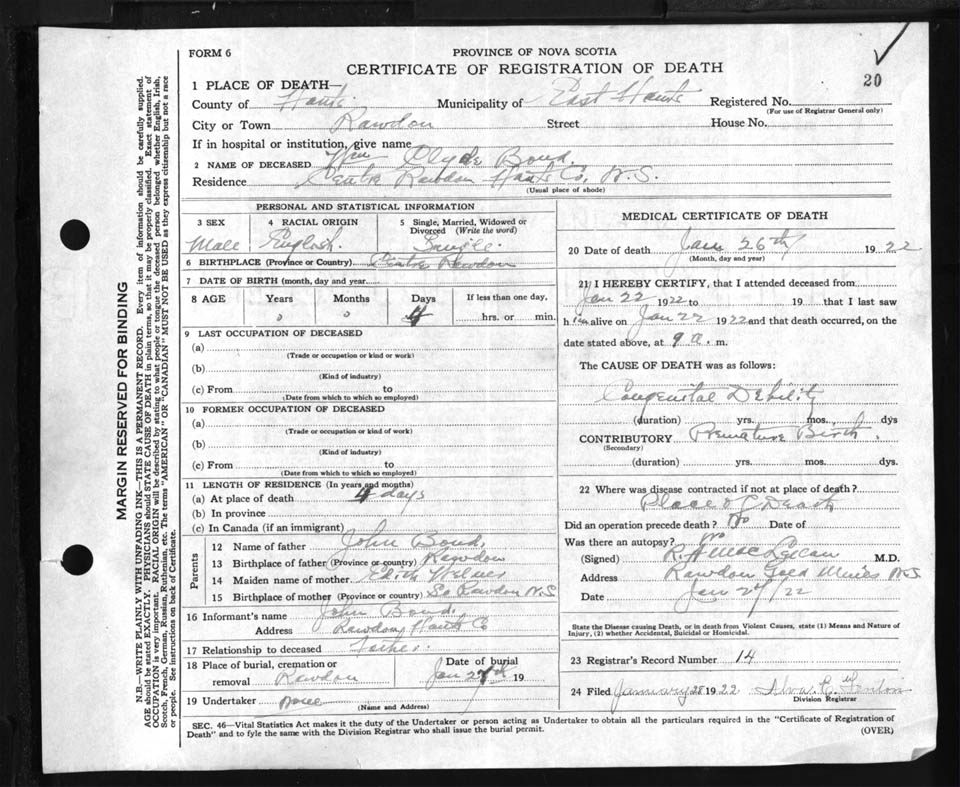 FORM 6
PROVINCE OF NOVA SCOTIA
CERTIFICATE OF REGISTRATION OF DEATH
20
1 PLACE OF DEATH—
County of Hants Municipality of East Hants Registered No.
(For use of Registrar General only)
City or Town Rawdon Street House No.
If in hospital or institution, give name
2 NAME OF DECEASED Wm Clyde Bond
Residence Centre Rawdon Hants Co, N.S.
(Usual place of abode)
PERSONAL AND STATISTICAL INFORMATION
3 SEX 4 RACIAL ORIGIN 5 Single, Married, Widowed or
Divorced (Write the word)
Male English Single
6 BIRTHPLACE (Province or Country) Centre Rawdon
7 DATE OF BIRTH (month, day and year)
8 AGE Years Months Days If less than one day,
0 0 4 hrs. or min.
9 LAST OCCUPATION OF DECEASED
(a)
(Trade or occupation or kind or work)
(b)
(Kind of industry)
(c) From to
(Date from which to which so employed)
10 FORMER OCCUPATION OF DECEASED
(a)
(Trade or occupation or kind of work)
(b)
(Kind of industry)
(c) From to
(Date from which to which so employed)
11 LENGTH OF RESIDENCE (In years and months)
(a) At place of death 4 days
(b) In province
(c) In Canada (if an immigrant)
Parents
12 Name of father John Bond
13 Birthplace of father (Province or country) Rawdon
14 Maiden name of mother Edith
15 Birthplace of mother (Province or country) So Rawdon N.S.
16 Informant's name John Bond
Address Rawdon, Hants Co
17 Relationship to deceased Father
18 Place of burial, cremation or Date of burial
removal Rawdon Jan 27th 19
19 Undertaker None
(Name and Address)
MEDICAL CERTIFICATE OF DEATH
20 Date of death Jan 26th 1922
(Month, day and year)
21 I HEREBY CERTIFY, that I attended deceased from
Jan 22 1922 to 19 that I last saw
h im alive on Jan 22 1922 and that death occurred, on the
date stated above, at 9 a. m.
The CAUSE OF DEATH was as follows:
Congenital Debility
(duration) yrs. mos. dys
CONTRIBUTORY Premature Birth.
(Secondary)
(duration) yrs. mos. dys.
22 Where was disease contracted if not at place of death?
Place of Death
Did an operation precede death? No Date of
Was there an autopsy? No
(Signed) R. A. MacLellan M.D.
Address Rawdon Gold Mines N.S.
Date Jan 27/22
State the Disease causing Death, or in death from Violent Causes, state (1) Means and Nature of
Injury, (2) whether Accidental, Suicidal or Homicidal.
23 Registrar's Record Number 14
24 Filed January 28 1922
Division Registrar
SEC. 46—Vital Statistics Act makes it the duty of the Undertaker or person acting as Undertaker to obtain all the particulars required in the "Certificate of Registration of
Death" and to fyle the same with the Division Registrar who shall issue the burial permit. (OVER)
MARGIN RESERVED FOR BINDING
N.B.—WRITE PLAINLY WITH UNFADING INK—THIS IS A PERMANENT RECORD. Every item of information should be carefully supplied.
AGE should be stated EXACTLY. PHYSICIANS should STATE CAUSE OF DEATH in plain terms, so that it may be properly classified. Exact statement of
OCCUPATION is very important. RACIAL ORIGIN will be described by stating to what people or tongue the deceased person belonged whether English, Irish,
Scotch, French, German, Russian, Ruthenian, etc. The terms "AMERICAN" OR "CANADIAN" MUST NOT BE USED as they express citizenship but not a race
or people. See instructions on back of Certificate.